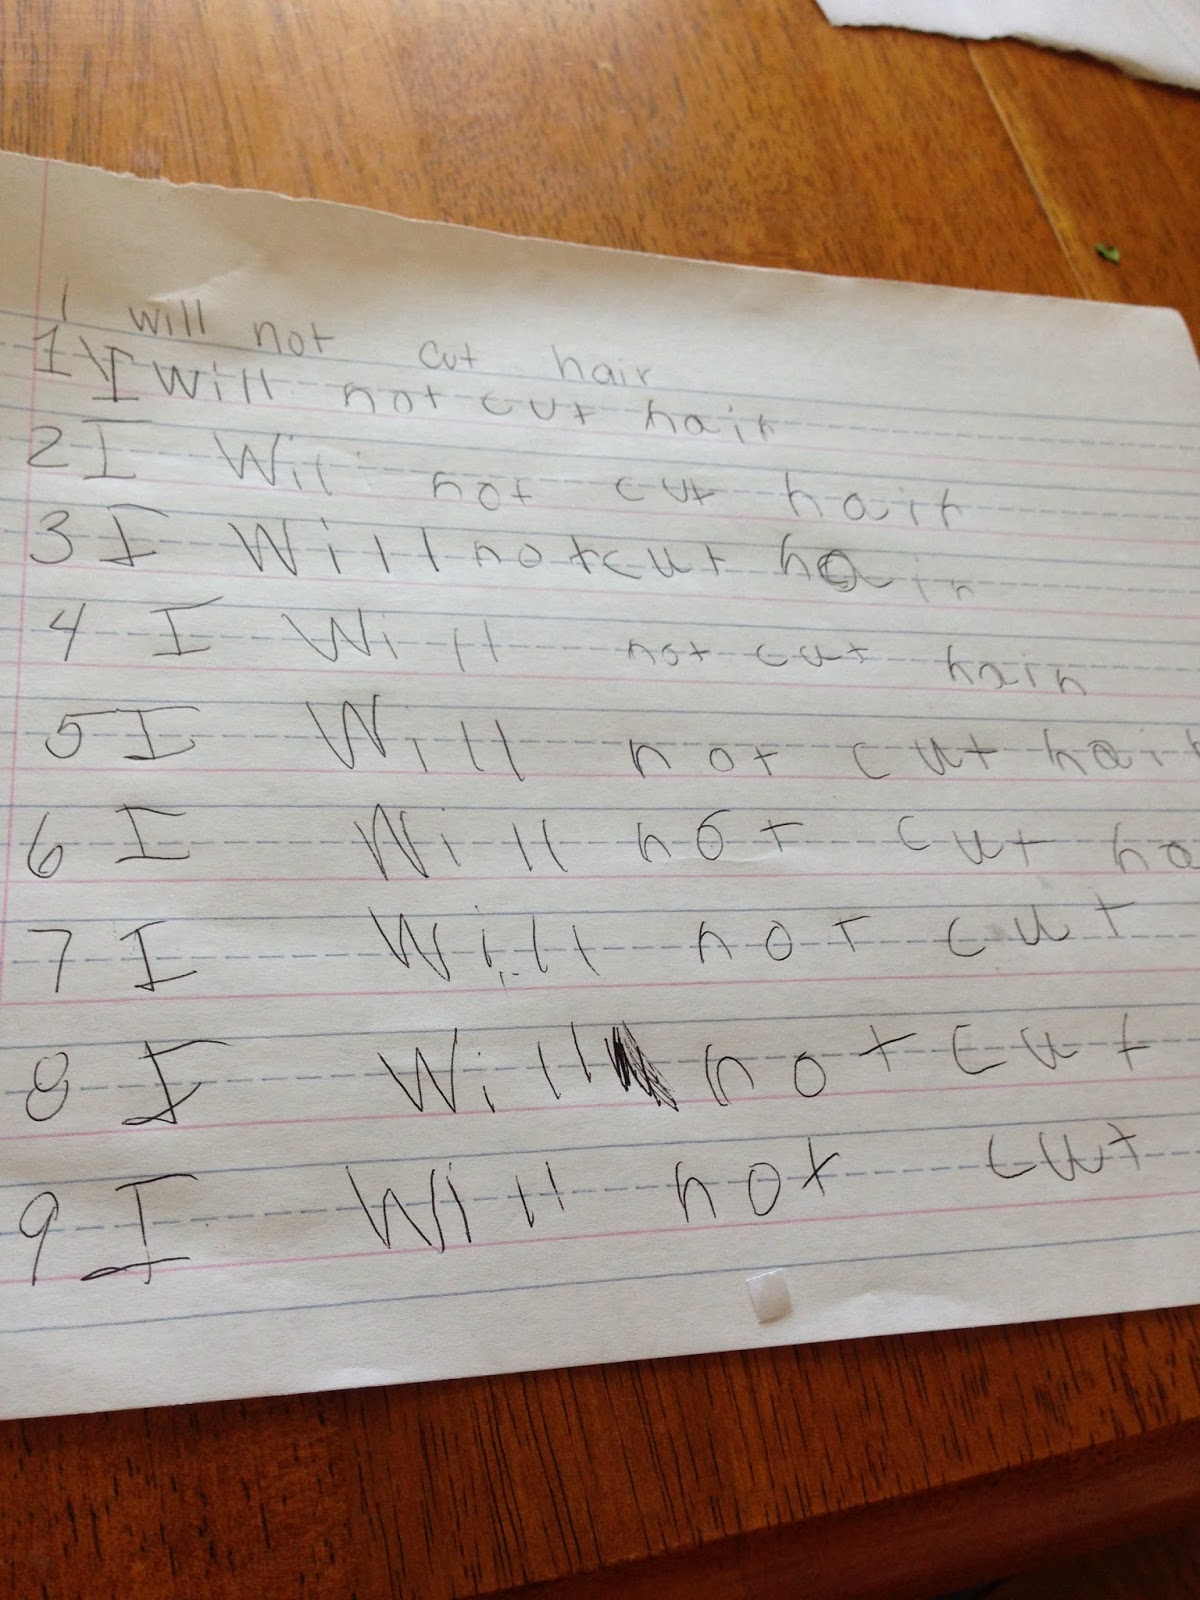 I will not cut hair
1 I Will not cut hair
2 I Will not cut hair
3 I Will not cut hair
4 I Will not cut hair
5 I Will not cut hair
6 I Will not cut ha
7 I Will not cut
8 I Will not cut
9 I Will not cut